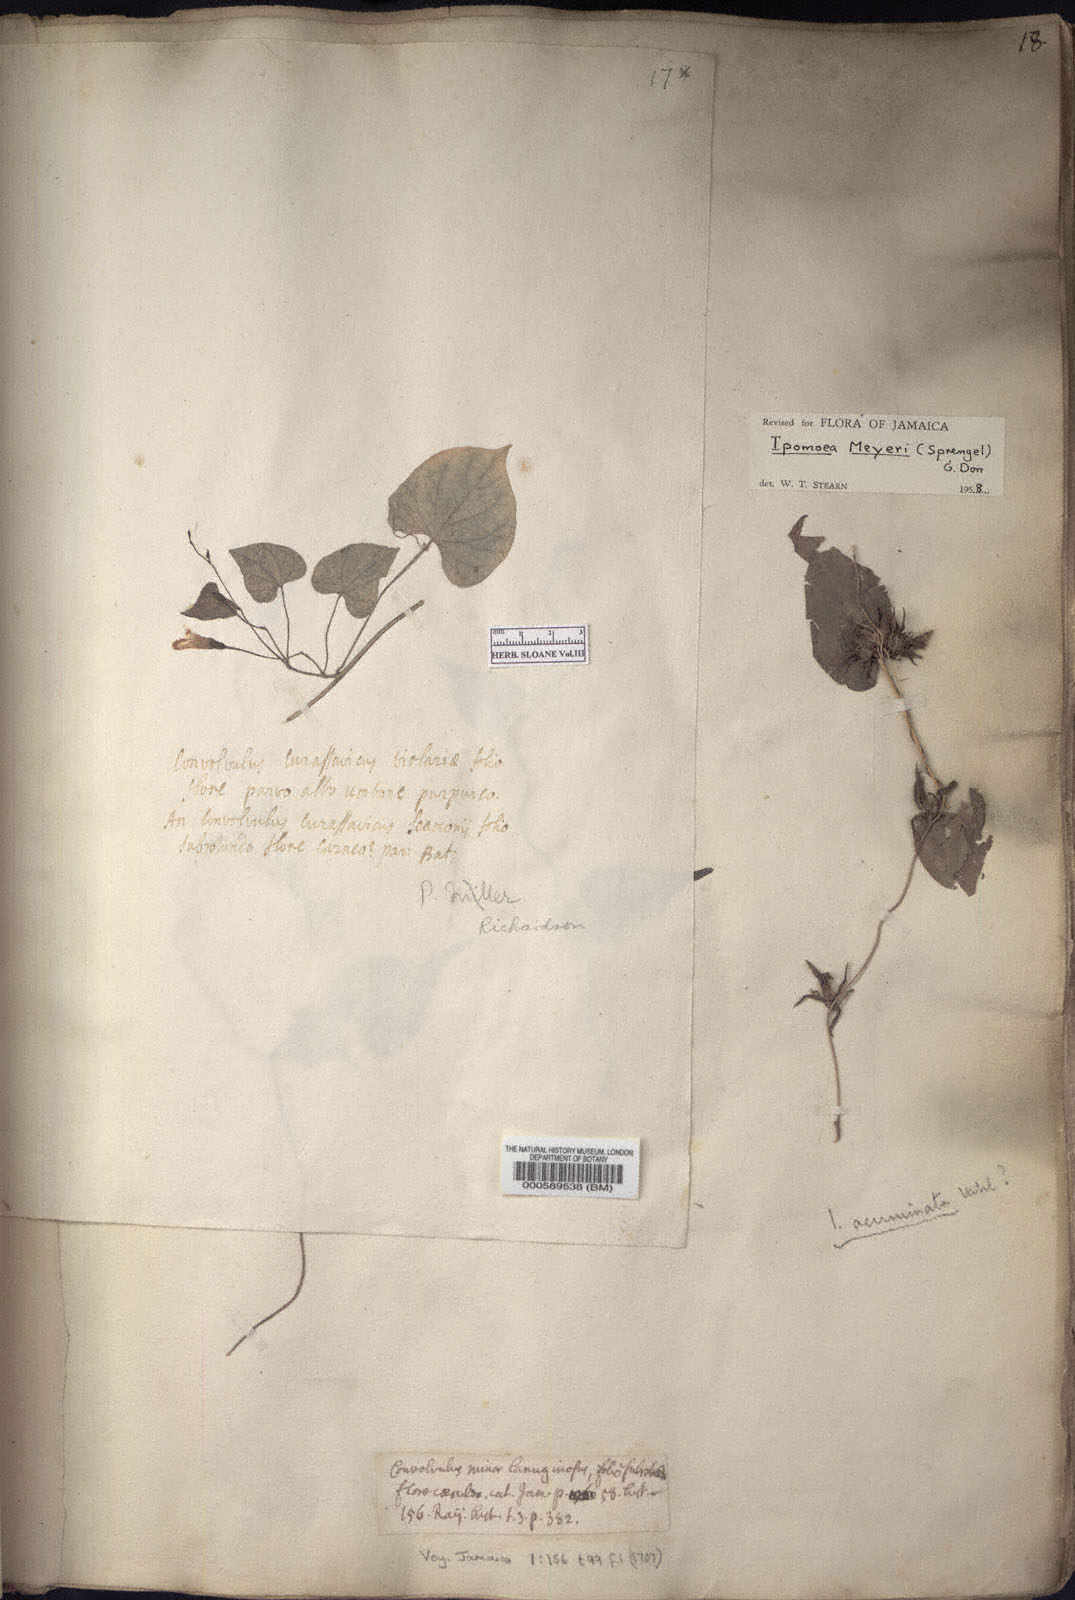 18
17*
Revised for FLORA OF JAMAICA
Ipomoea Meyeri (Sprengel)
G. Don
det. W. T. STEARN 1958
mm 1 2 3
HERB. SLOANE Vol.III
Convolvulus Curassavicus violariæ folio
flore parvo albo umbone purpureo.
An Convolvulus Curassavicus Scamonij folio
subrotundo flore carneo? par: Bat:
P. Miller
Richardson
THE NATURAL HISTORY MUSEUM, LONDON
DEPARTMENT OF BOTANY
000589538 (BM)
I. acuminata Vahl?
Convolvulus minor lanuginosus, folio
flore cæruleo. cat. Jam. p. 58. hist.
156. Raij. hist. t.3. p. 382.
Voy. Jamaica 1:156 t99 f.1 (1707)